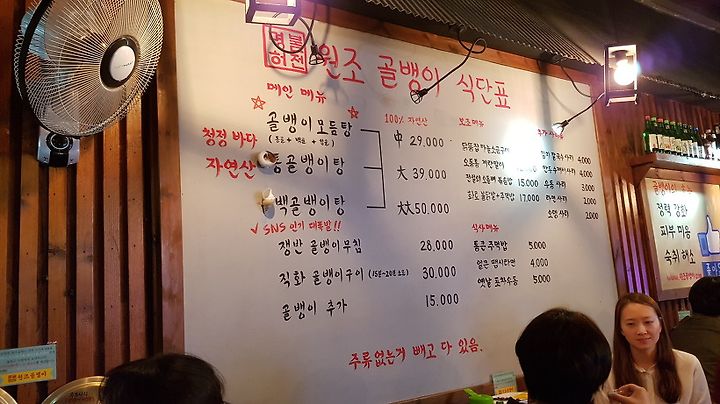 명불허전 원조 골뱅이 식단표
메인 메뉴
청정 바다
자연산
골뱅이모듬탕
통골뱅이탕
백골뱅이탕
100% 자연산
中 29,000
大 39,000
大大 50,000
✓ SNS 인기 대폭발!!
쟁반 골뱅이무침 28,000
직화 골뱅이구이 (15분~20분 소요) 30,000
골뱅이 추가 15.000
보조메뉴
15,000
17,000
4,000
4,000
우동 사리 3,000
라면 사리 2,000
오뎅 사리 2,000
식사메뉴
통큰 주먹밥 5,000
얼큰 뗑시라면 4,000
옛날 포차우동 5,000
주류없는거 빼고 다 있음.
정력 강화
피부 미용
숙취 해소
원조골뱅이